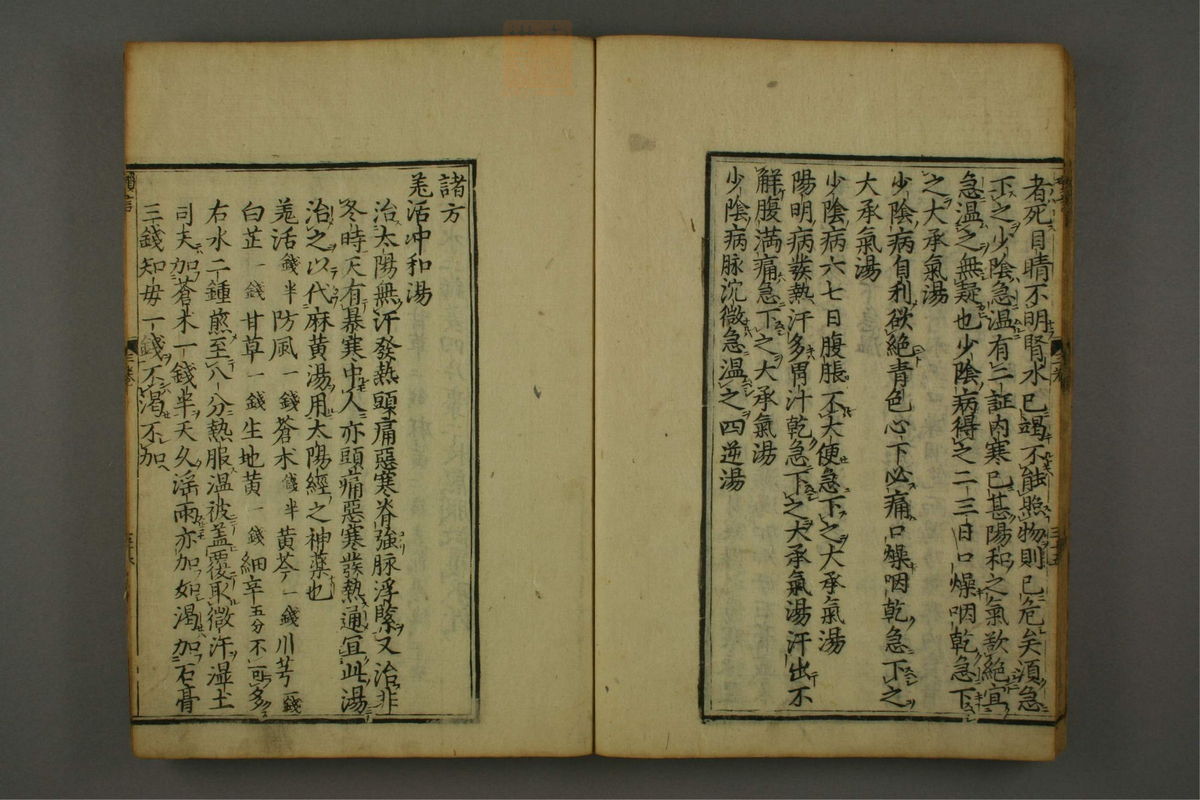 者死目睛不明腎水已竭不能照物則已危矣須急
下之少陰急温有二証内寒已甚陽和之氣欲絶宜
急温之無疑也少陰病得之二三日口燥咽乾急下
之大承氣湯
少陰病自利欲絶青色心下必痛口燥咽乾急下之
大承氣湯
少陰病六七日腹脹不大便急下之大承氣湯
陽明病發熱汗多胃汁乾急下之大承氣湯汗出不
解腹満痛急下之大承氣湯
少陰病脉沉微急温之四逆湯
諸方
羗活冲和湯
治太陽無汗發熱頭痛惡寒脊強脉浮緊又治非
冬時天有暴寒中人亦頭痛惡寒發熱通宜此湯
治之以代麻黄湯用太陽經之神藥也
羗活錢半防風一錢蒼术錢半黄芩一錢川芎一錢
白芷一錢甘草一錢生地黄一錢細辛五分不可多
右水二鍾煎至八分熱服温被盖覆取微汗湿土
司天加蒼术一錢半天久淫雨亦加如渴加石膏
三錢知母一錢不渴不加